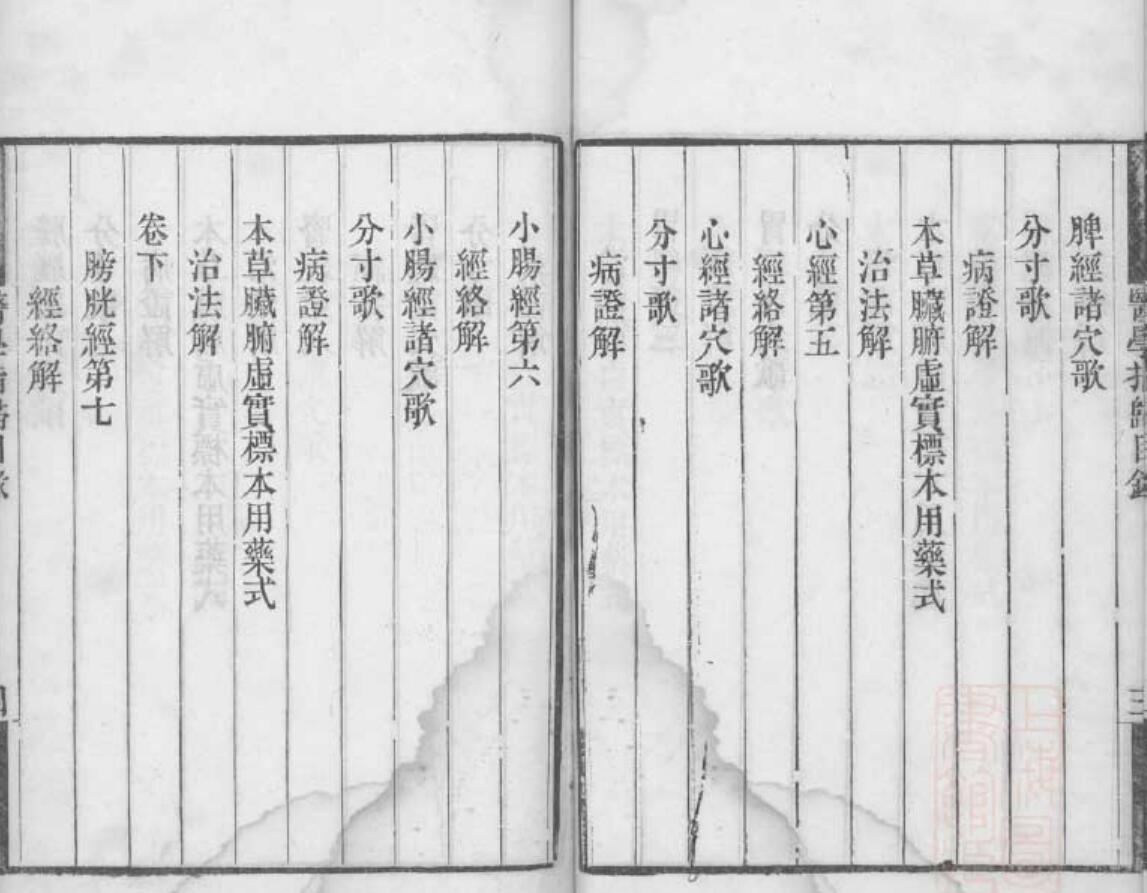 脾經諸穴歌
分寸歌
病證解
本草臟腑虛實標本用藥式
治法解
心經第五
經絡解
心經諸穴歌
分寸歌
病證解
小腸經第六
經絡解
小腸經諸穴歌
分寸歌
病證解
本草臟腑虛實標本用藥式
治法解
卷下
膀胱經第七
經絡解